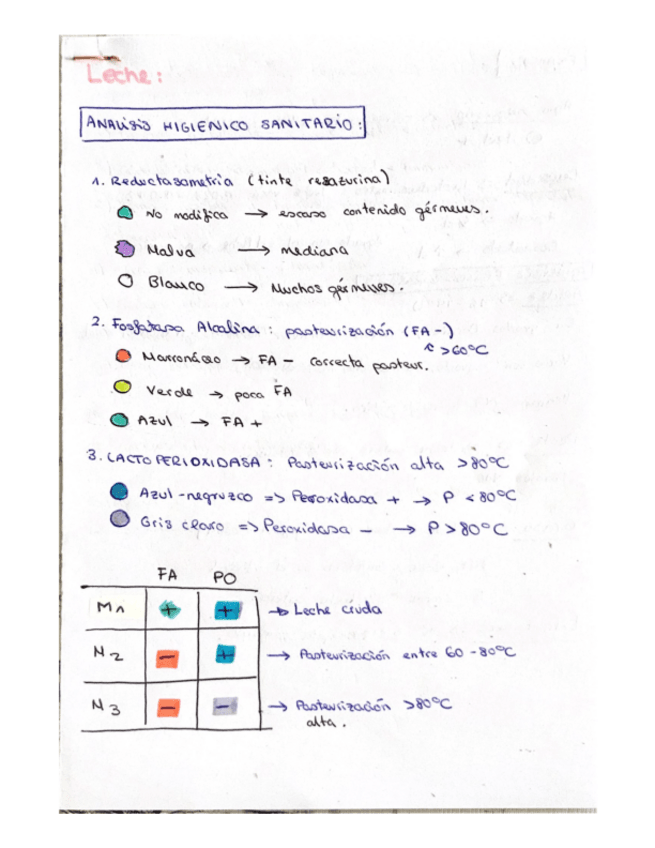 Leche:
ANALISIS HIGIENICO SANITARIO:
1. Reductasometria (tinte resazurina)
No modifica → escaso contenido gérmenes.
Malva → mediana
Blanco → Muchos gérmenes.
2. Fosfatasa Alcalina: pasteurización (FA-)
>60ºC
Marronáceo → FA - correcta pasteur.
Verde → poca FA
Azul → FA +
3. LACTOPERIOXIDASA: Pasteurización alta >80ºC
Azul-negruzco => Peroxidasa + → P <80ºC
Gris claro => Peroxidasa - → P >80ºC
FA PO
M1 + + → Leche cruda
M2 - + → Pasteurización entre 60-80ºC
M3 - - → Pasteurización >80ºC
alta.